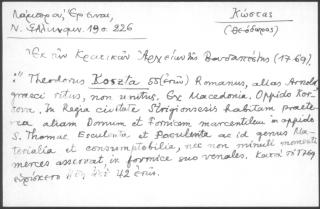 Λάμπρου, Σπ.
Ν. Ἑλληνομν. 19 σ. 226
Κώστας
(Θεόδωρος)
Ἐκ τῶν Κρατικῶν Ἀρχείων τῆς Βουδαπέστης (1769).
:" Theodorus Koszta 55 (ἐτῶν) Romanus, alias Arnold
graeci ritus, non unitus. Ex Macedonia. Oppido Kor-
tova. In Regia civitate Strigoniensi habitam praete-
rea aliam Domum et Fornicem mercantilem in oppido
S. Thomae Esculenta et Poculenta ac id genus Ma-
terialia et consumptibilia, nec non minuti momenti
merces asservat in fornice suo venales. Κατὰ τὸ 1769
εὑρίσκετο 42 ἐτῶν.